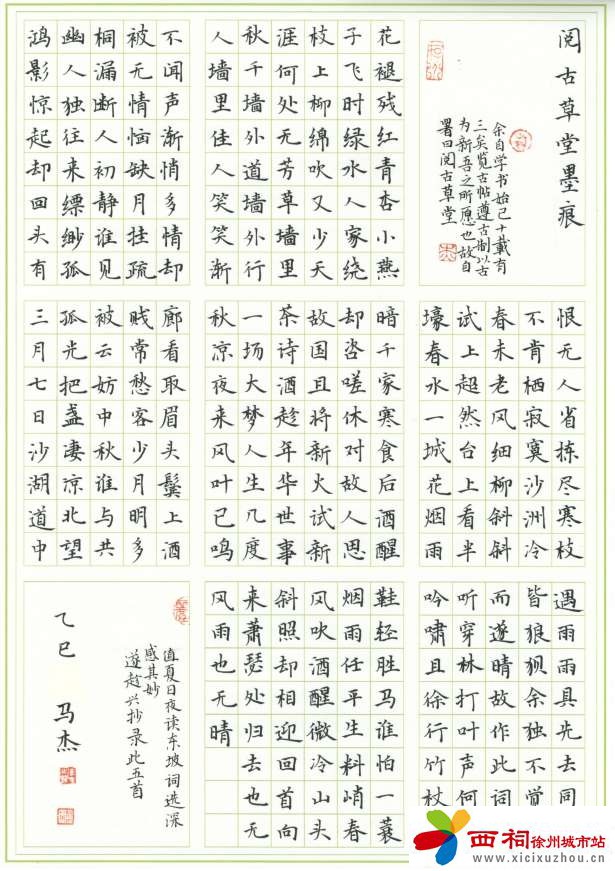 阅古草堂墨痕
余自学书始已十载有
三矣览古帖遵古制以古
为新吾之所愿也故自
署曰阅古草堂
花褪残红青杏小燕
子飞时绿水人家绕
枝上柳绵吹又少天
涯何处无芳草墙里
秋千墙外道墙外行
人墙里佳人笑笑渐
不闻声渐悄多情却
被无情恼缺月挂疏
桐漏断人初静谁见
幽人独往来缥缈孤
鸿影惊起却回头有
恨无人省拣尽寒枝
不肯栖寂寞沙洲冷
春未老风细柳斜斜
试上超然台上看半
壕春水一城花烟雨
暗千家寒食后酒醒
却咨嗟休对故人思
故国且将新火试新
茶诗酒趁年华世事
一场大梦人生几度
秋凉夜来风叶已鸣
廊看取眉头鬓上酒
贱常愁客少月明多
被云妨中秋谁与共
孤光把盏凄凉北望
三月七日沙湖道中
遇雨雨具先去同
皆狼狈余独不觉
而遂晴故作此词
听穿林打叶声何
吟啸且徐行竹杖
鞋轻胜马谁怕一蓑
烟雨任平生料峭春
风吹酒醒微冷山头
斜照却相迎回首向
来萧瑟处归去也无
风雨也无晴
值夏日夜读东坡词选深
感其妙
遂趁兴抄录此五首
乙巳 马杰
西祠徐州城市站
www.xicixuzhou.cn